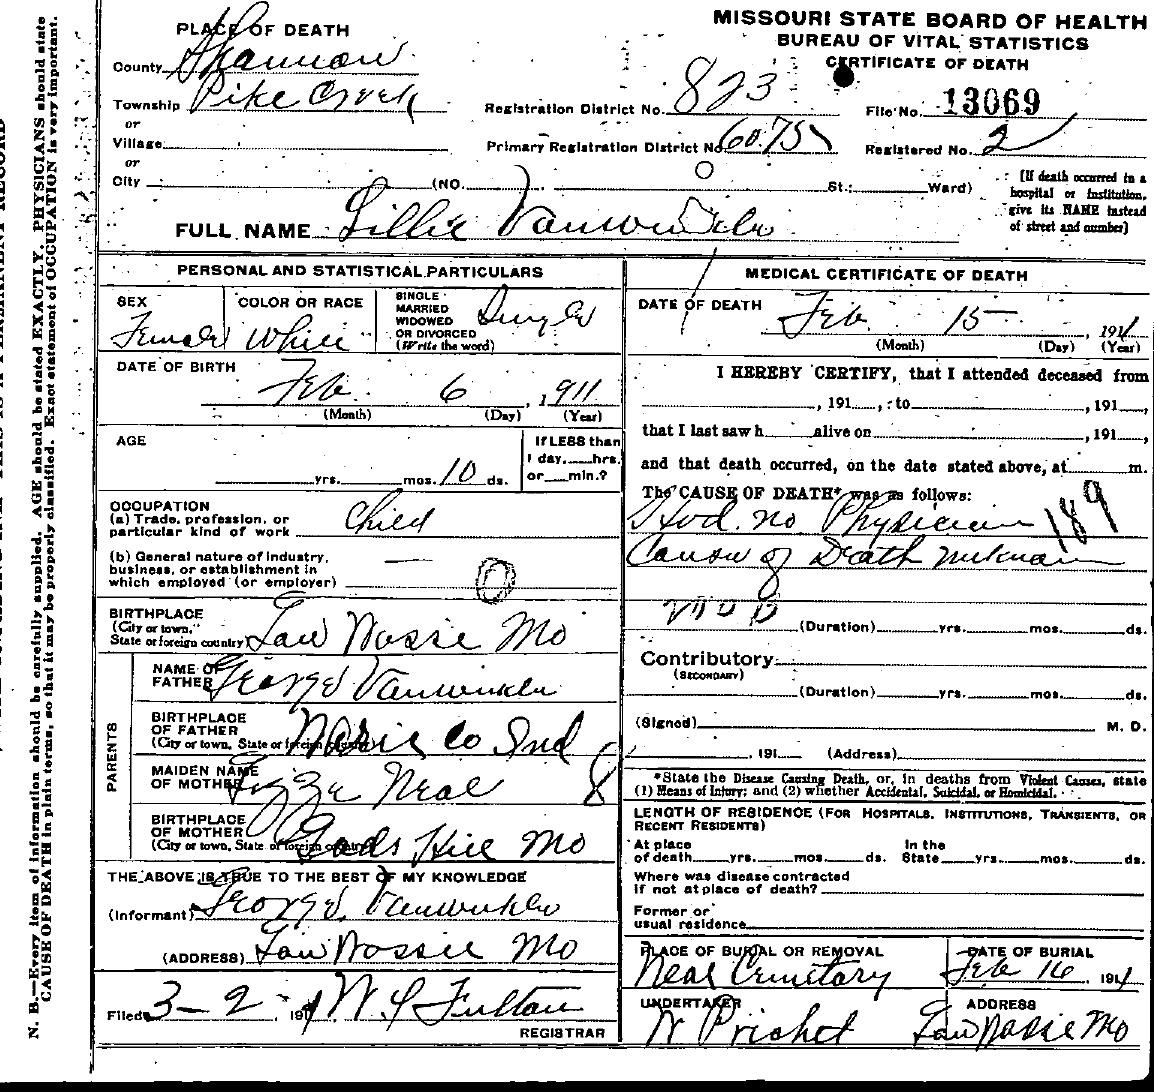 MISSOURI STATE BOARD OF HEALTH
BUREAU OF VITAL STATISTICS
CERTIFICATE OF DEATH
PLACE OF DEATH
County Shannon
Township Pike Creek
or
Village
or
City (NO. St.; Ward)
Registration District No. 823
File No. 13069
Primary Registration District No. 6075
Registered No. 2
(If death occurred in a
hospital or institution,
give its NAME instead
of street and number)
FULL NAME Lillie Vanwinkle
PERSONAL AND STATISTICAL PARTICULARS
SEX
Female
COLOR OR RACE
White
SINGLE
MARRIED
WIDOWED
OR DIVORCED
(Write the word)
Single
DATE OF BIRTH
Feb 6, 1911
(Month) (Day) (Year)
AGE
yrs. mos. 10 ds.
If LESS than
1 day, hrs.
or min.?
OCCUPATION
(a) Trade, profession, or
particular kind of work Child
(b) General nature of industry,
business, or establishment in
which employed (or employer)
0
BIRTHPLACE
(City or town,
State or foreign country)
Mo
PARENTS
NAME OF
FATHER George Vanwinkle
BIRTHPLACE
OF FATHER
(City or town, State or foreign country)
Co Ind
MAIDEN NAME
OF MOTHER Lizzie Neal
8
BIRTHPLACE
OF MOTHER
(City or town, State or foreign country)
Gads Hill Mo
THE ABOVE IS TRUE TO THE BEST OF MY KNOWLEDGE
(Informant) George Vanwinkle
(ADDRESS) Mo
Filed 3-2, 191 Fulton
REGISTRAR
MEDICAL CERTIFICATE OF DEATH
DATE OF DEATH
Feb 15, 1911
(Month) (Day) (Year)
I HEREBY CERTIFY, that I attended deceased from
, 191 , to , 191 ,
that I last saw h alive on , 191 ,
and that death occurred, on the date stated above, at m.
The CAUSE OF DEATH* was as follows:
Had no Physician
189
Cause of Death unknown
(Duration) yrs. mos. ds.
Contributory
(SECONDARY)
(Duration) yrs. mos. ds.
(Signed) M. D.
, 191 (Address)
*State the Disease Causing Death, or, in deaths from Violent Causes, state
(1) Means of Injury; and (2) whether Accidental, Suicidal, or Homicidal.
LENGTH OF RESIDENCE (FOR HOSPITALS, INSTITUTIONS, TRANSIENTS, OR
RECENT RESIDENTS)
At place
of death yrs. mos. ds.
In the
State yrs. mos. ds.
Where was disease contracted
if not at place of death?
Former or
usual residence
PLACE OF BURIAL OR REMOVAL
Neal Cemetary
DATE OF BURIAL
Feb 16, 1911
UNDERTAKER
ADDRESS
Mo
N. B.—Every item of information should be carefully supplied. AGE should be stated EXACTLY. PHYSICIANS should state
CAUSE OF DEATH in plain terms, so that it may be properly classified. Exact statement of OCCUPATION is very important.